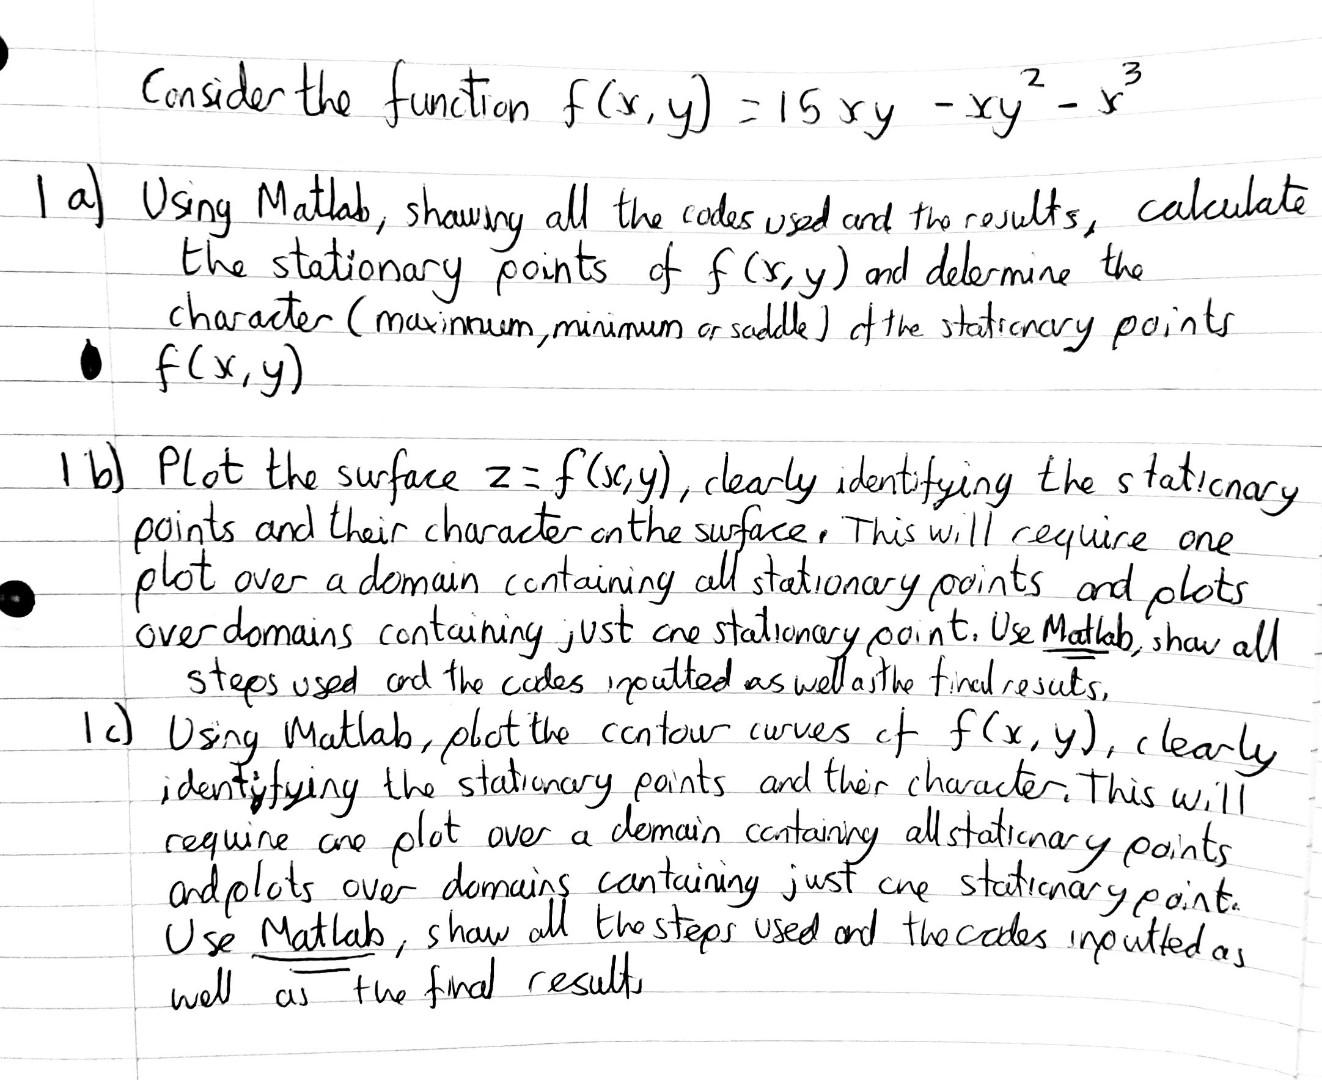 Consider the function f(x,y) = 15xy - xy² - x³
1a) Using Matlab, showing all the codes used and the results, calculate
the stationary points of f(x,y) and determine the
character (maximum, minimum or saddle) of the stationary points
f(x,y)
1b) Plot the surface z = f(x,y), clearly identifying the stationary
points and their character on the surface. This will require one
plot over a domain containing all stationary points and plots
over domains containing just one stationary point. Use Matlab, show all
steps used and the codes inputted as well as the final resuts.
1c) Using Matlab, plot the contour curves of f(x,y), clearly
identifying the stationary points and their character. This will
require one plot over a domain containing all stationary points
and plots over domains containing just one stationary point.
Use Matlab, show all the steps used and the codes inputted as
well as the final results